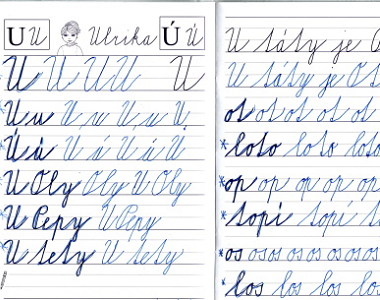 U U Ulrika Ú Ú
U U U U U
U u U u U u U
Ú ú Ú ú Ú ú Ú
U Oly Oly U Oly
U Pepy U Pepy
U tety U tety
U táty je O
U táty je Ot
ot ot ot ot ot
* loto loto loto
op op op op op
* topí topí t
os os os os os os os
* los los los los